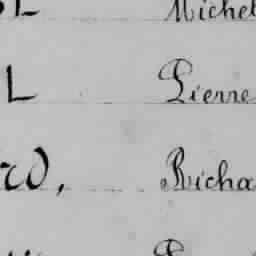 L Michel
L Pierre
rd, Richa